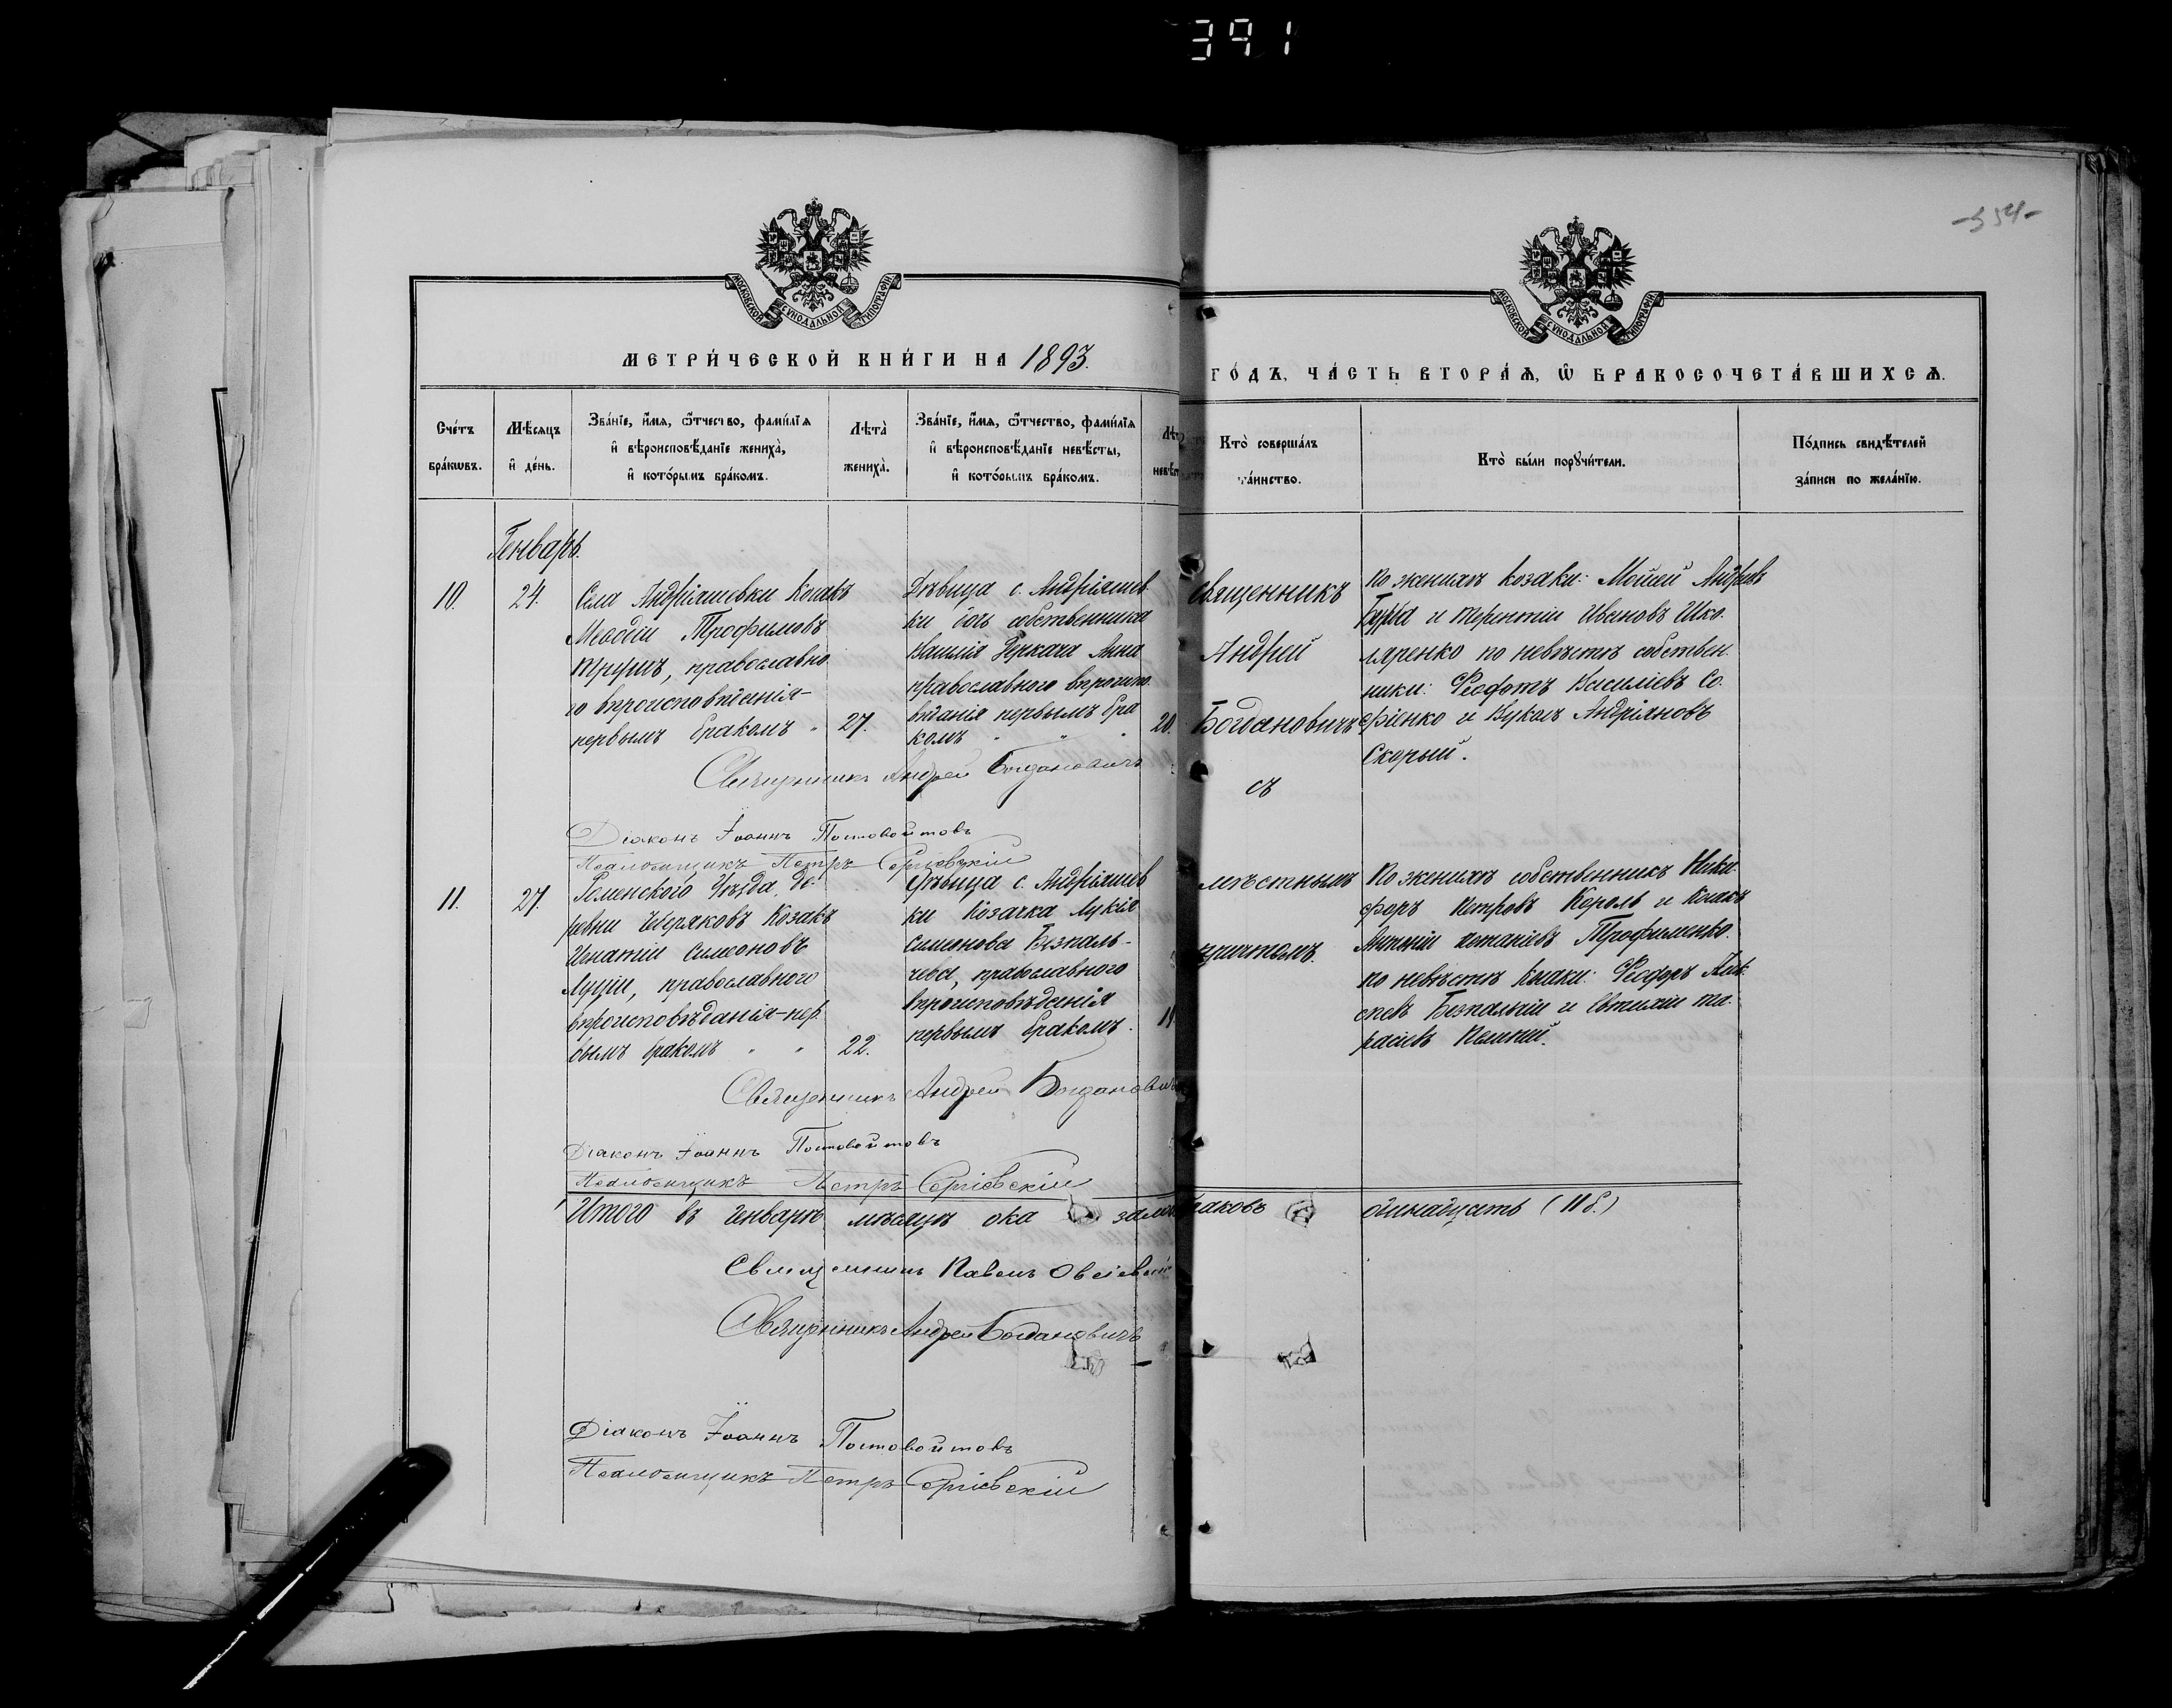 391
-354-
МОСКОВСКОЙ СѴНОДАЛЬНОЙ ТИПОГРАФІИ
МОСКОВСКОЙ СѴНОДАЛЬНОЙ ТИПОГРАФІИ
МЕТРИ́ЧЕСКОЙ КНИ́ГИ НА 1893.
ГО́ДЪ, ЧА́СТЬ ВТОРА́Ѧ, Ѡ҆ БРАКОСОЧЕТА́ВШИХСѦ.
Сче́тъ
бра́кѡвъ.
Мѣ́сяцъ
и҆ де́нь.
Зва́нїе, и҆́мя, ѻ҆́тчество, фами́лїя
и҆ вѣроисповѣ́данїе жениха̀,
и҆ кото́рымъ бра́комъ.
Лѣта̀
жениха̀.
Зва́нїе, и҆́мя, ѻ҆́тчество, фами́лїя
и҆ вѣроисповѣ́данїе невѣ́сты,
и҆ кото́рымъ бра́комъ.
Кто̀ соверша́лъ
та́инство.
Кто̀ бы́ли порꙋчи́тели.
По́дпись свидѣ́телей
за́писи по жела́нїю.
Генварь.
10.
24.
Села Андріяшевки Козакъ
Меѳодій Трофимовъ
православна
го вѣроисповѣданія-
первымъ бракомъ "
27.
Дѣвица с. Андріяшев
ки дочь собственника
Василія Деркача Анна
православного вѣроиспо.
вѣданія первымъ бра
комъ " " "
20.
Священникъ
Андрей
Богдановичъ
съ
По женихѣ козаки: Мойсей Андреевъ
и Терентій Ивановъ Шко.
ляренко по невѣстѣ собствен.
ники: Феодотъ Василіевъ Со.
фіенко и Вуколъ Андріяновъ
Скорый.
Священникъ Андрей Богдановичъ
Діаконъ Іоаннъ Постовойтовъ
Псаломщикъ Петръ Сергіевскій
11.
27.
Роменского Уѣзда де.
ревни Шеряковъ Козакъ
Игнатій Симеоновъ
Луцій, православного
вѣроисповѣданія-пер.
вымъ бракомъ " "
22.
Дѣвица с. Андріяшев
ки Козачка Лукія
Симеонова Безпаль-
чева, православного
вѣроисповѣданія
первымъ бракомъ.
мѣстнымъ
причтомъ.
По женихѣ собственникъ Ники.
форъ Петровъ Король и Козакъ
Антоній Потапіевъ Трофименко.
по невѣстѣ Козаки: Феодоръ Алек.
сіевъ Безпалчій и Евтихій Та.
расіевъ
Священникъ Андрей Богдановичъ
Діаконъ Іоаннъ Постовойтовъ
Псаломщикъ Петръ Сергіевскій
Итого въ Генварѣ мѣсяцѣ браковъ одинадцать (11 б.)
Священникъ Павелъ Овсіевскій
Священникъ Андрей Богдановичъ
Діаконъ Іоаннъ Постовойтовъ
Псаломщикъ Петръ Сергіевскій